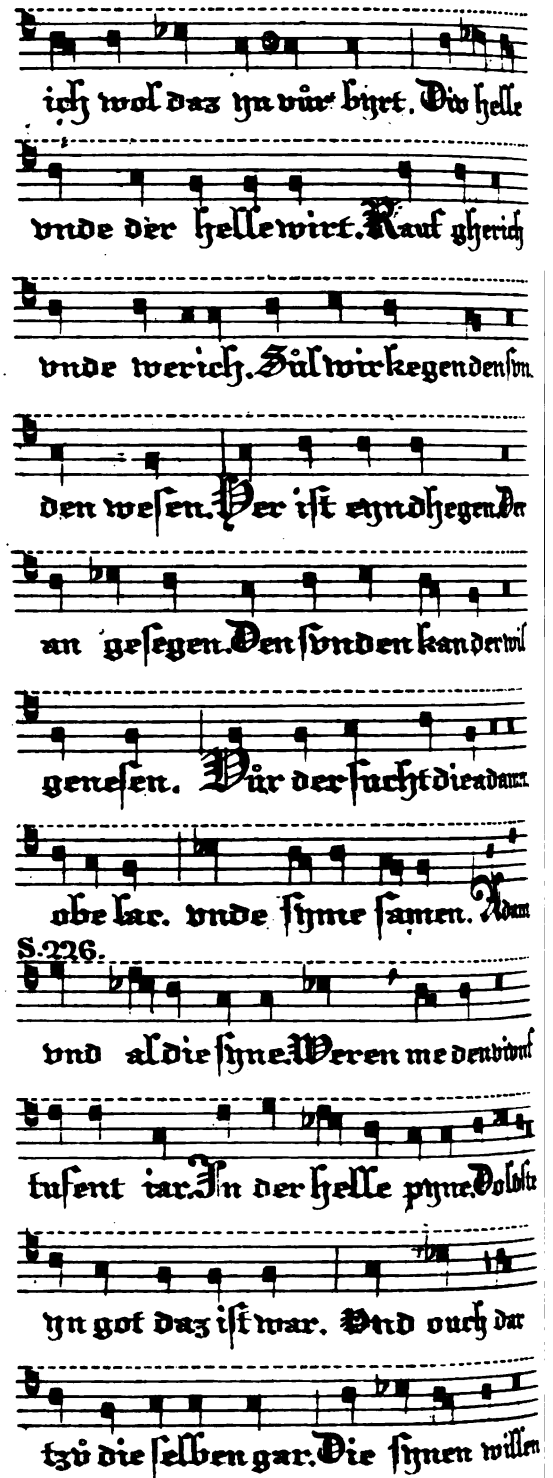 ich wol daz yn vůr byrt. Div helle
vnde der hellewirt. Rauf gherich
vnde werich. Sůl wir kegen den svn
den wesen. Der ist eyn dhegen. Der
an gesegen. Den svnden kan der wil
genesen. Vůr der sucht die adam
obe lac. vnde syme samen. Adam
S. 226.
vnd al die syne. Weren me den
tusent iar. In der helle pyne. Do loste
yn got daz ist war. Vnd ouch dar
tzů die selben gar. Die synen willen